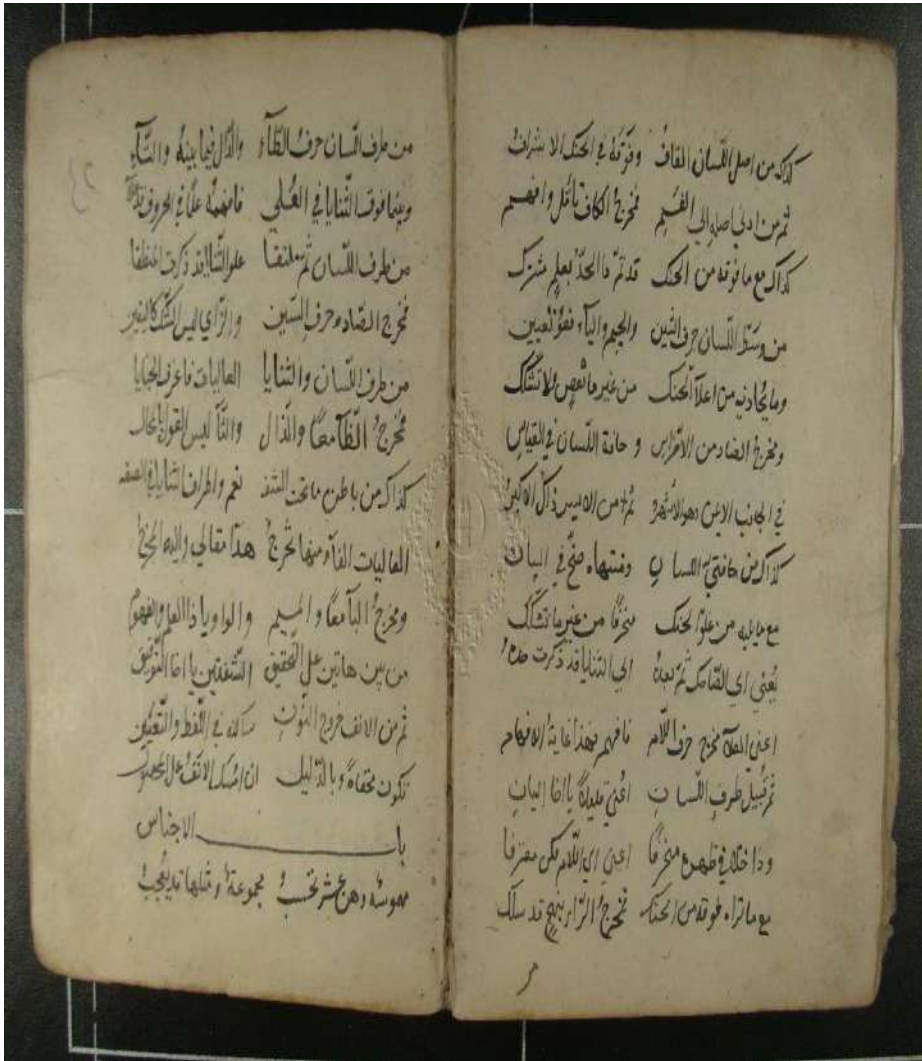 كذاك من اصل اللسان القاف وفوقه في الحنك الاشراف
ثم من ادنى اصله الى الفم فمخرج الكاف تأمل وافهم
كذاك مع ما فوقه من الحنك قد تم ذا الحد بعلم مشترك
من وسط اللسان حرف الشين والجيم والياء تعيين
وما يحاذيه من اعلا الحنك من غير ما نقص ولا تشكك
ومخرج الضاد من الاضراس وحافة اللسان في القياس
في الجانب الايمن وهو الاشهر من الايسر ذاك الاكبر
كذاك من حافتي اللسان ومنتهاه صح في البيان
مع ما يليه من علو الحنك منحرفا من غير ما تشكك
يعني الى الضاحك ثم بعده الى الثنايا قد ذكرت حده
اعني مخرج حرف اللام فافهم فهذا غاية الافهام
ثم قبيل طرف اللسان اعني قليلا يا اخا البيان
وداخلا في ظهره منحرفا اعني الى اللام فكن معترفا
مع ما تراه فوقه من الحنك فمخرج الراء بنهج قد سلك
من طرف اللسان حرف الطاء والدال فيما بينه والتاء
وبينما فوق الثنايا في العلى فافهمه علما في الحروف
من طرف اللسان ثم ملتقا علو الثنايا قد ذكرت
فمخرج الصاد وحرف السين والزاي ليس الشك كاليقين
من طرف اللسان والثنايا العاليات فاعرف الخبايا
فمخرج الظا معا والذال والثا ليس القول
كذاك من باطن ما تحت الشفه نعم واطراف الثنايا في الصفه
العاليات الفاء منها تخرج هذا مقالي واليه المخرج
ومخرج البا معا والميم والواو يا ذا العلم والفهوم
من بين هاتين على التحقيق الشفتين يا اخا التوفيق
ثم من الانف خروج النون ساكنه في اللفظ والتعيين
تكون مخفاة وبالدليل ان امسك الانف
باب الاجناس
مهموسة وهن عشر تحسب مجموعة ومثلها